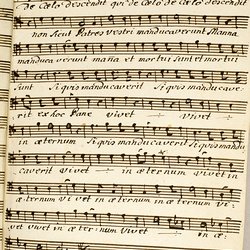 de Cælo descendit qui de Cælo de Cælo descendit
non sicut Patres vestri manducaverunt Manna
manducaverunt mana et mortui sunt et mortui
sunt Si quis manducaverit Si quis manducave
rit ex hoc Pane vivet vivet
in æternum Si quis manducaverit Si quis mandu
caverit vivet in æternum vivet in
æternum vivet in æternum vi
vet vivet in æternum vivet in æ